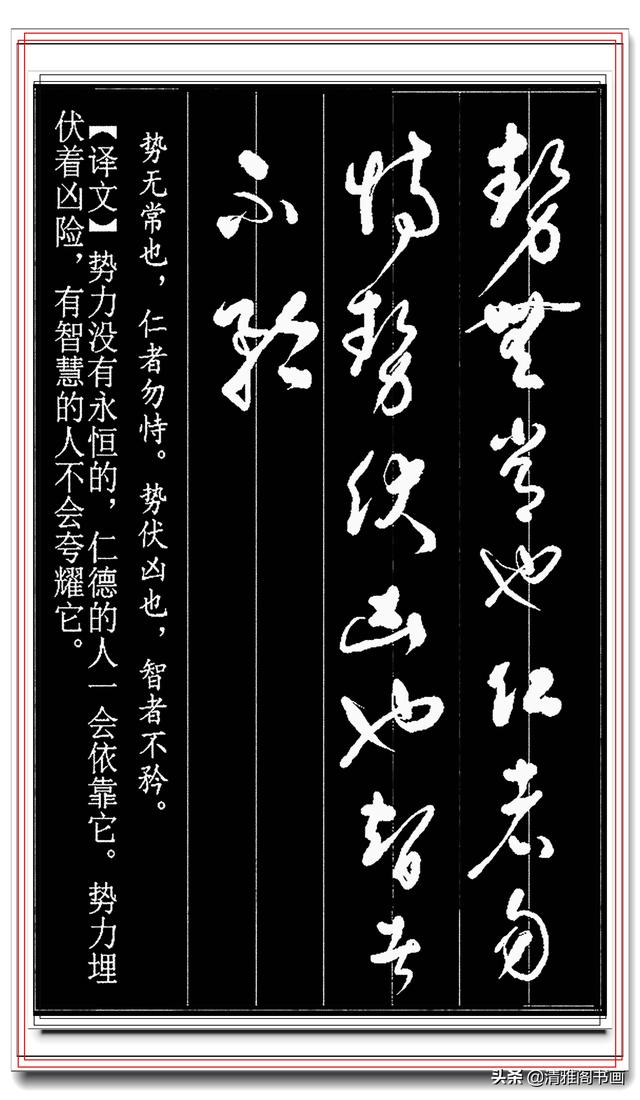 势无常也仁者勿
恃势伏凶也智者
不矜
势无常也，仁者勿恃。势伏凶也，智者不矜。
【译文】势力没有永恒的，仁德的人一会依靠它。势力埋
伏着凶险，有智慧的人不会夸耀它。
头条@清雅阁书画